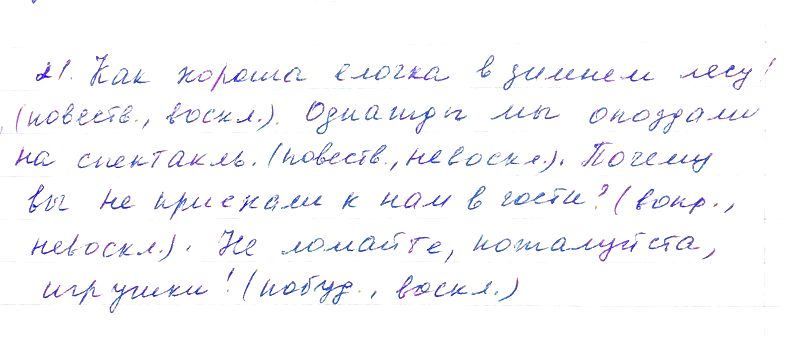 21. Как хороша елочка в зимнем лесу!
(повеств., воскл.). Однажды мы опоздали
на спектакль. (повеств., невоскл.). Почему
вы не приехали к нам в гости? (вопр.,
невоскл.). Не ломайте, пожалуйста,
игрушки! (побуд., воскл.)